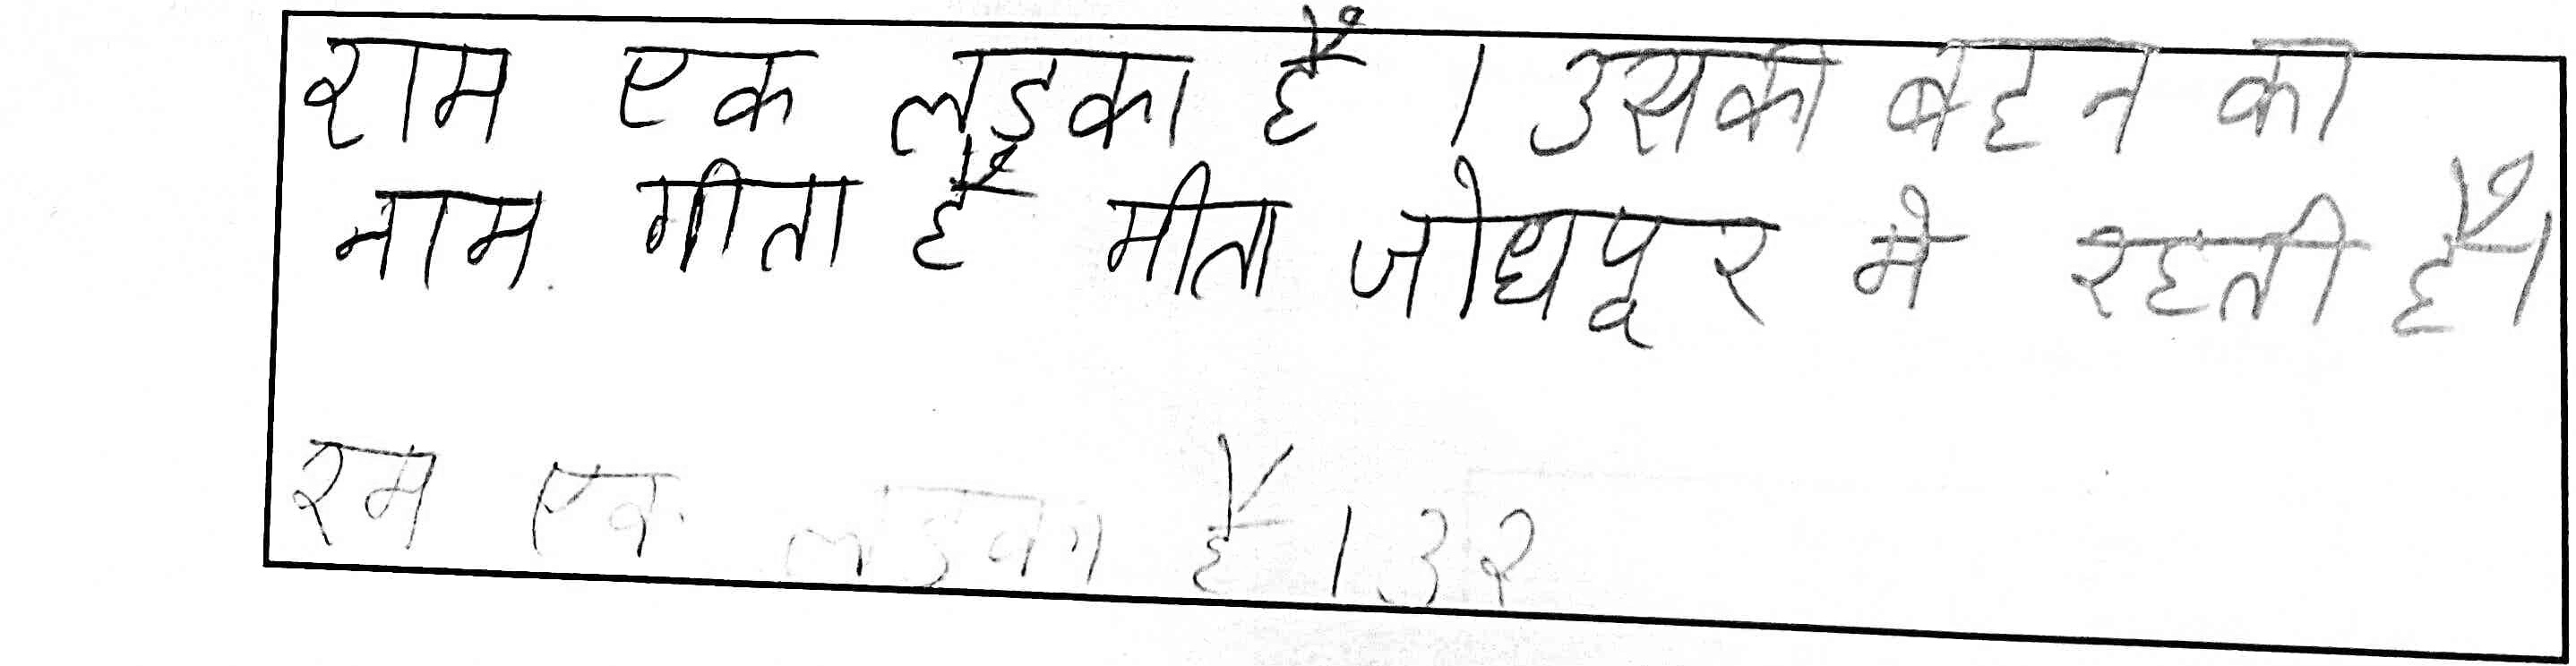 राम एक लड़का हैं । उसका बहन का
नाम गीता है मीता जोधपूर मे रहती हैं।
रम एक लडका है । उर